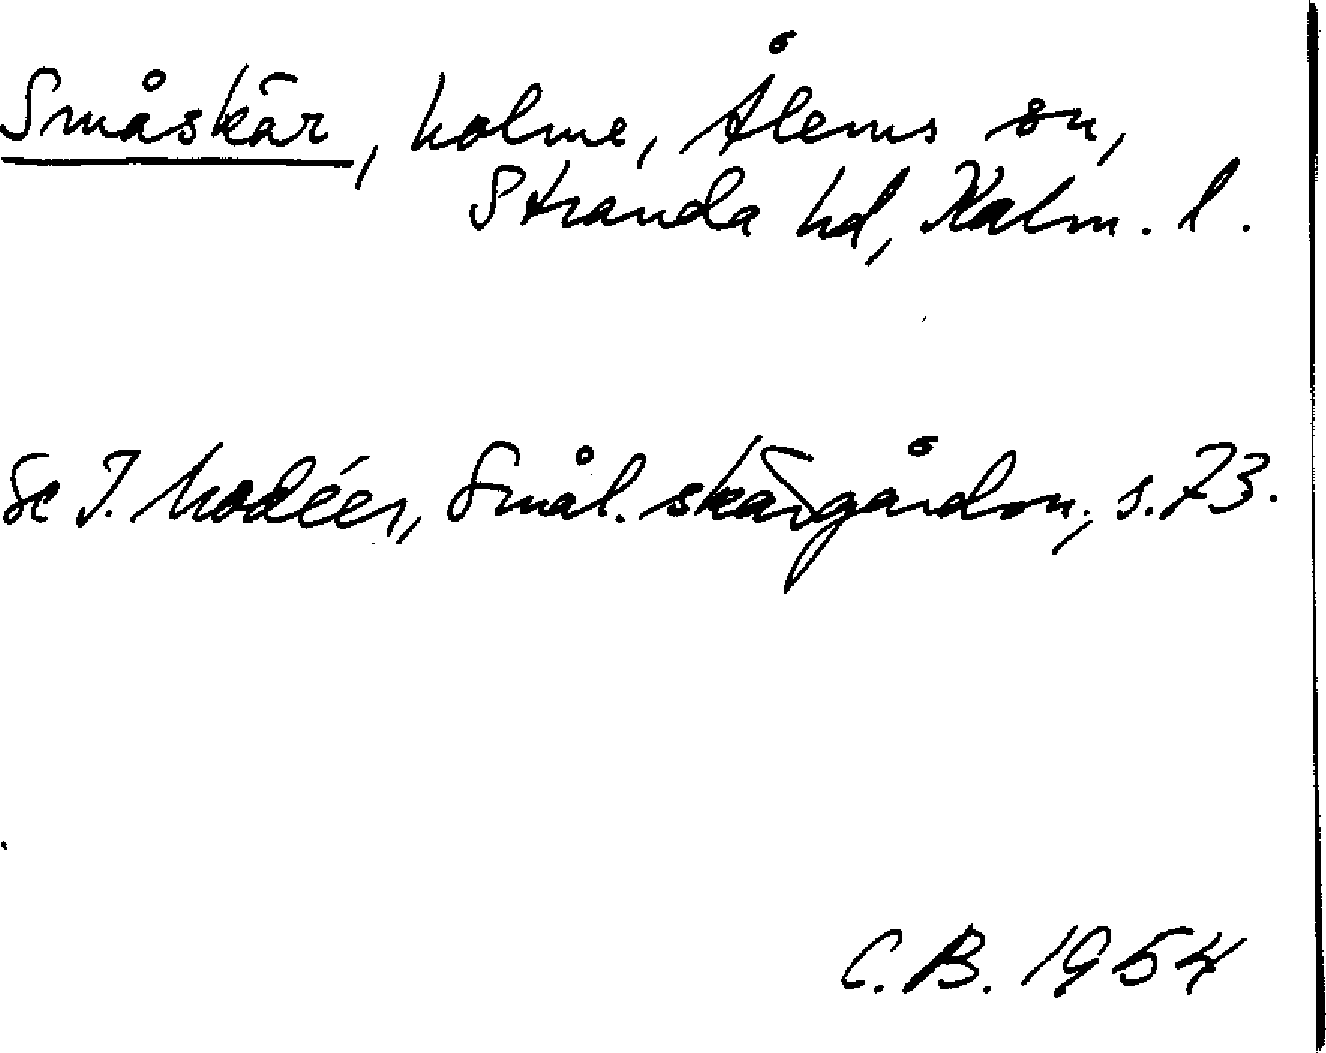 Småskär, holme, Ålems sn,
Stranda hd, Kalm. l.
Se I. Modéer, Smål. skärgårdsn., s. 73.
C.B. 1954